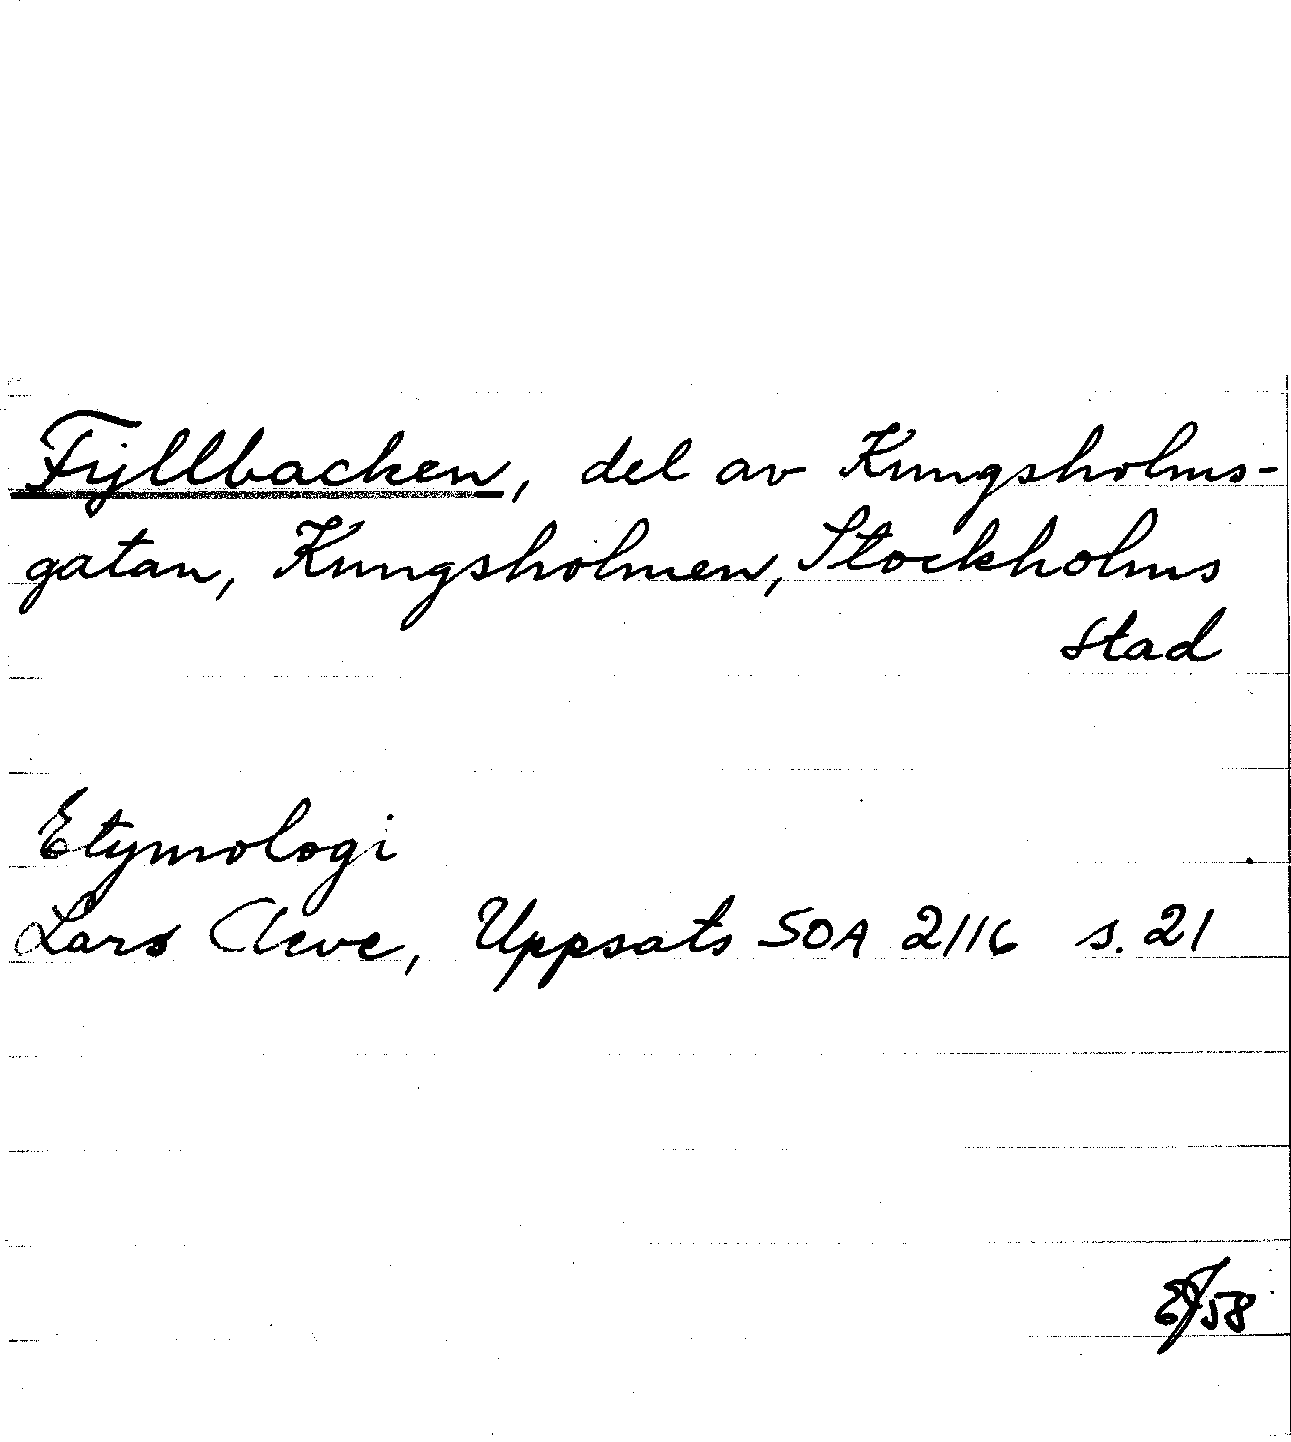 Fyllbacken, del av Kungsholms-
gatan, Kungsholmen, Stockholms
stad
Etymologi
Lars Cleve, Uppsats SOA 2116 s. 21